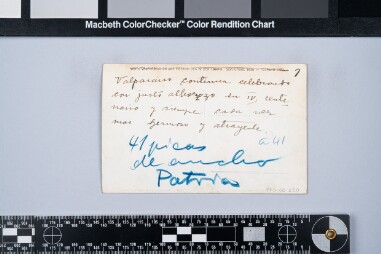 Macbeth ColorChecker™ Color Rendition Chart
7
Valparaiso continua celebrando
con justo alborozo su IV cente
nario y siempre cada vez
mas hermoso y atrayente.
41 picas
a 41
de ancho
Patrias